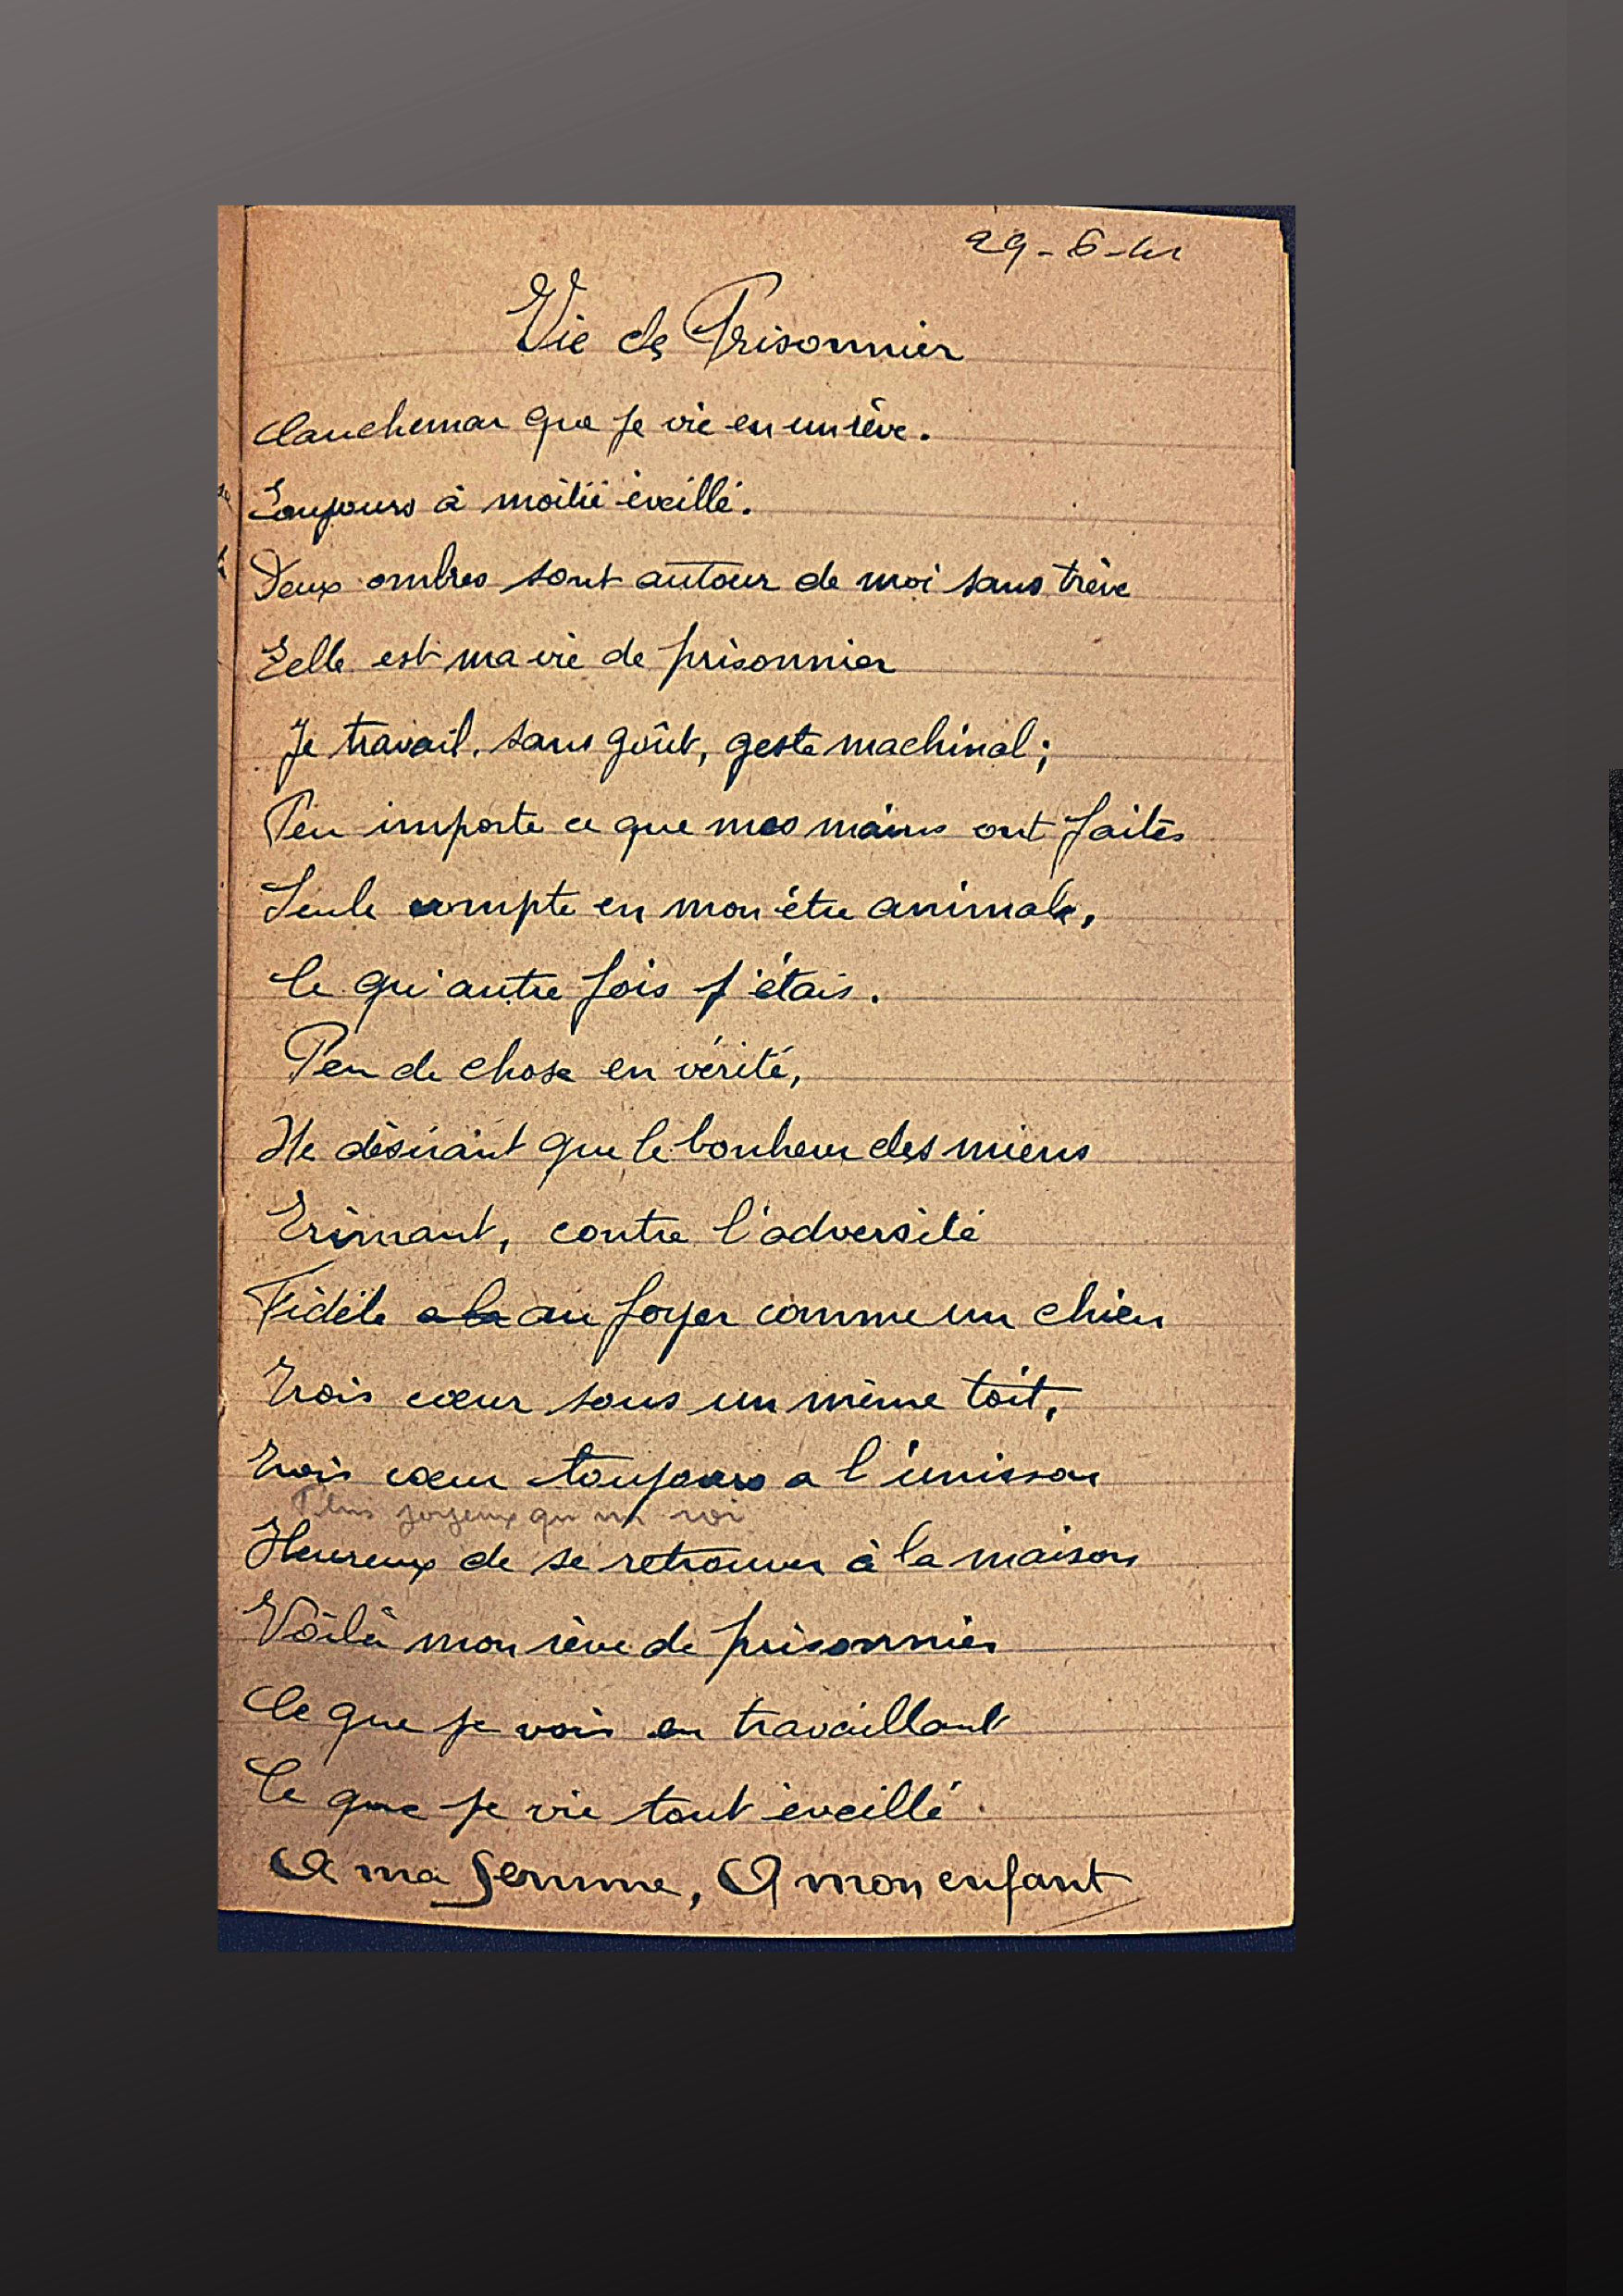 29-6-41
Vie de Prisonnier
Cauchemar que je vie en un rêve.
Toujours à moitié éveillé.
Deux ombres sont autour de moi sans trève
Telle est ma vie de prisonnier
Je travail, sans goût, geste machinal;
Peu importe ce que mes mains ont faites
Seule compte en mon être animale,
Ce qu'autre fois j'étais.
Peu de chose en vérité,
Ne désirant que le bonheur des miens
Trimant, contre l'adversité
Fidèle a la au foyer comme un chien
Trois cœur sous un même toit,
Trois cœur toujours a l'unisson
Plus joyeux qu'un roi
Heureux de se retrouver à la maison
Voilà mon rêve de prisonnier
Ce que je vois en travaillant
Ce que je vie tout éveillé
A ma femme, A mon enfant